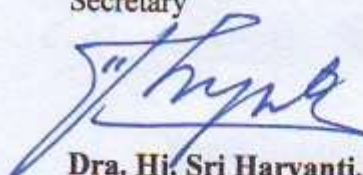 Secretary
Dra. Hj. Sri Haryanti